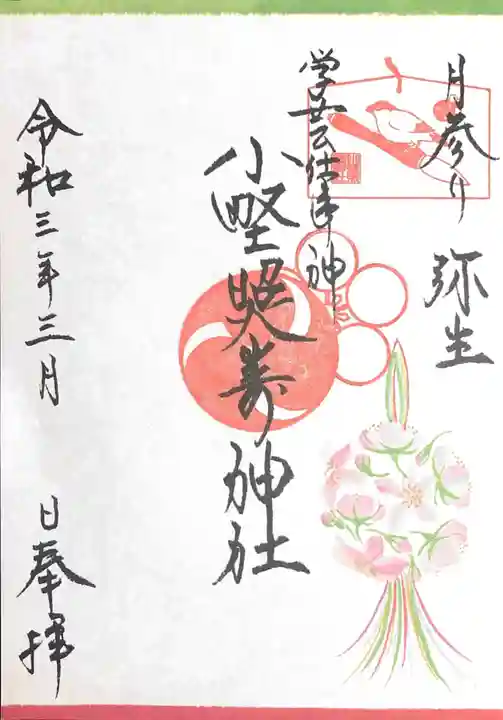 月参り
弥生
学芸仕事神
小野照嵜神社
令和三年三月 日奉拝